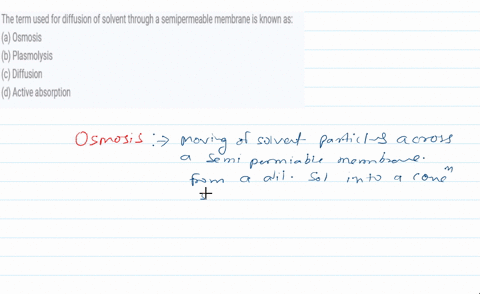 The term used for diffusion of solvent through a semipermeable membrane is known as:
(a) Osmosis
(b) Plasmolysis
(c) Diffusion
(d) Active absorption
Osmosis :→ moving of solvent particles across
a semi permiable membrane.
from a dil. sol into a conc<sup>n</sup>